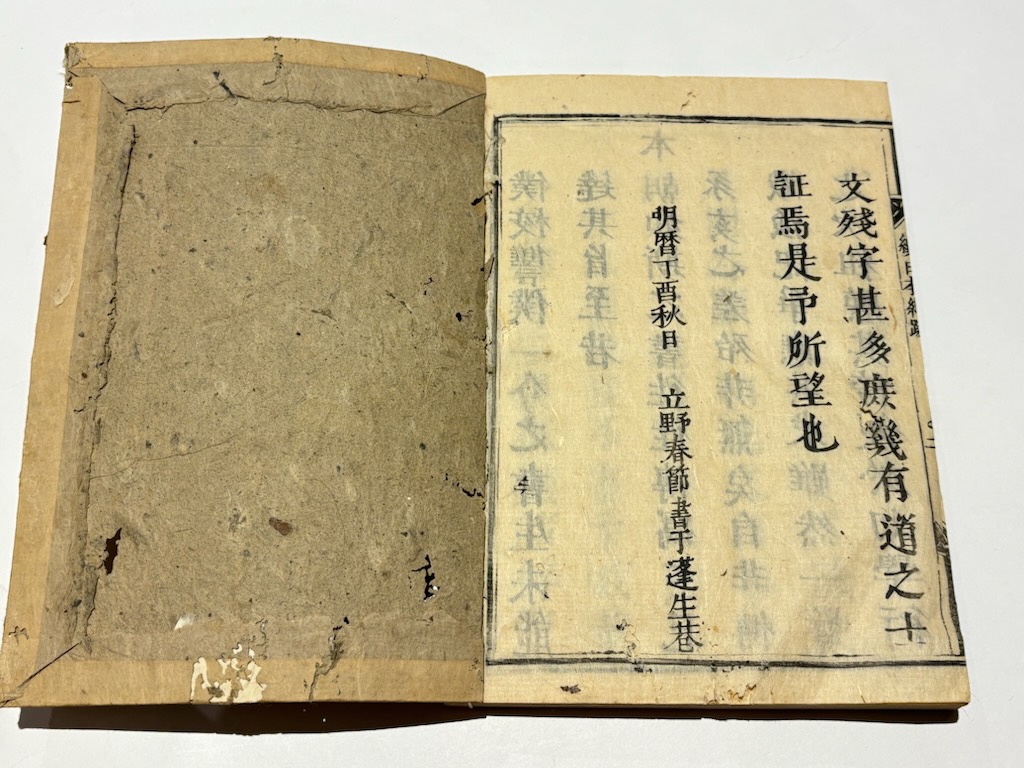 文殘字甚多庶幾有道之士
証焉是予所望也
明暦丁酉秋日 立野春節書于蓬生巷
續日本紀跋